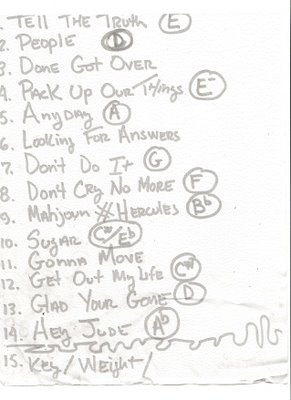 1. Tell The Truth (E)
2. People (D)
3. Done Got Over
4. Pack Up Our Things (E-)
5. Anyday (A)
6. Looking For Answers
7. Don't Do It (G)
8. Don't Cry No More (F)
9. Mahjoun # Hercules (Bb)
10. Sugar (C#/Eb)
11. Gonna Move
12. Get Out My Life (C#)
13. Glad Your Gone (D)
14. Hey Jude (Ab)
15. Key/Weight/